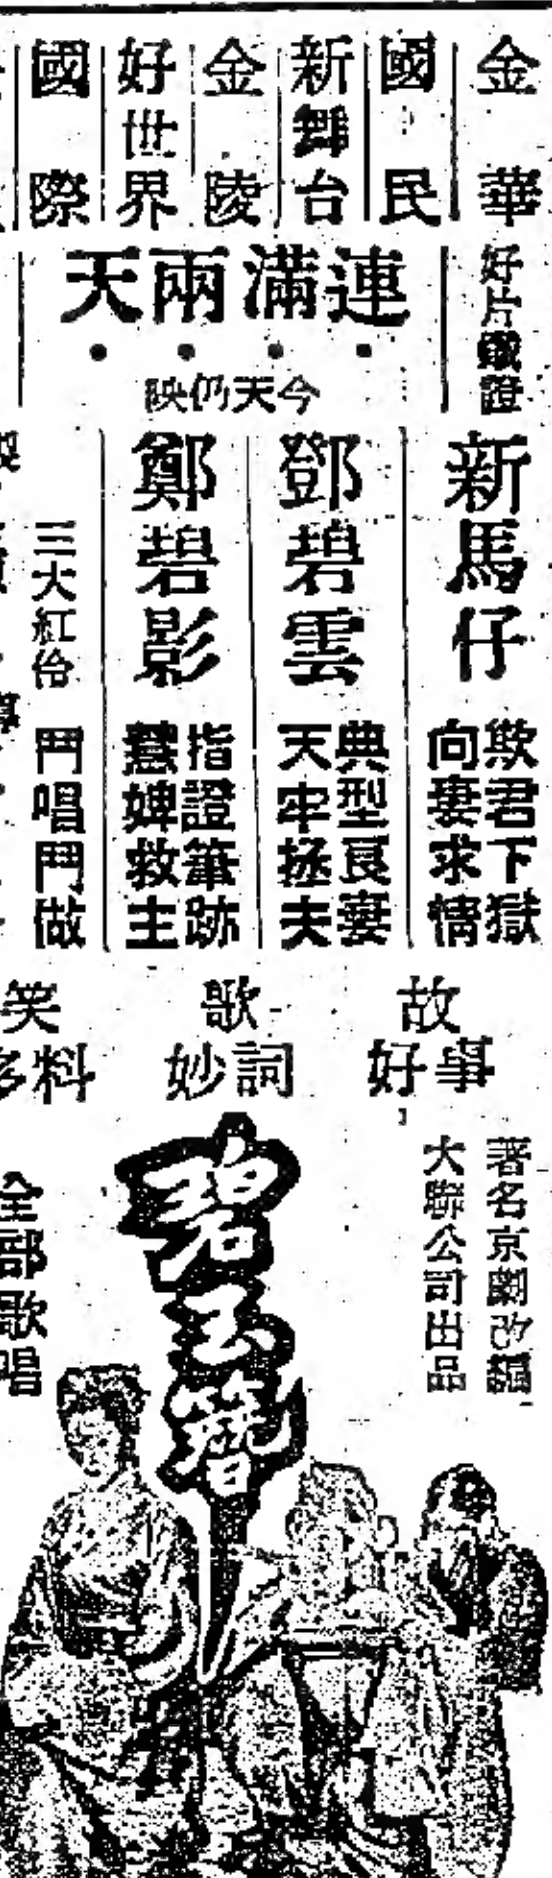 金華
國民
新舞台
金陵
好世界
國際
好片鐵證
連滿兩天
今天仍映
新馬仔
欺君下獄
向妻求情
鄧碧雲
典型良妻
天牢拯夫
鄭碧影
指證筆跡
慧婢救主
三大紅伶
鬥唱鬥做
故事好
歌詞妙
笑料多
著名京劇改編
大聯公司出品
碧玉簪
全部歌唱